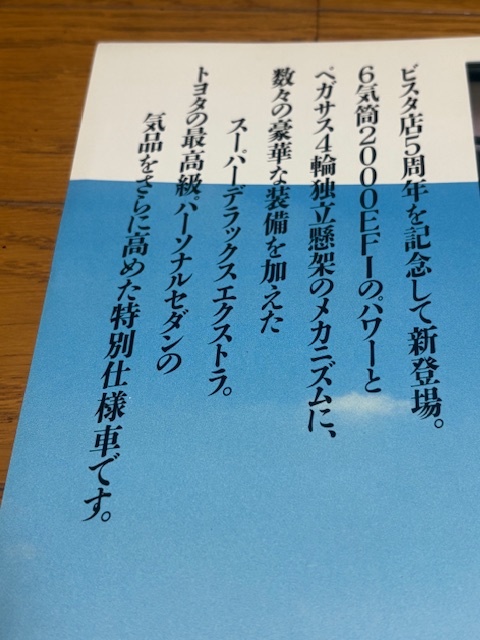 ビスタ店5周年を記念して新登場。
6気筒2000EFIのパワーと
ペガサス4輪独立懸架のメカニズムに、
数々の豪華な装備を加えた
スーパーデラックスエクストラ。
トヨタの最高級パーソナルセダンの
気品をさらに高めた特別仕様車です。